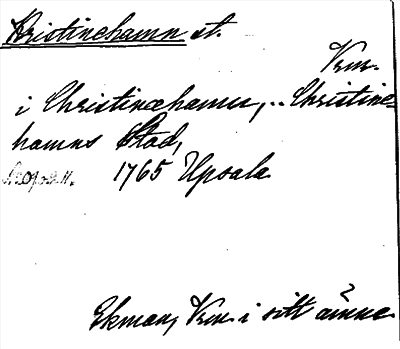 Kristinehamn st.
Vrm.
i Christinæhamn, .. Christine-
hamns Stad,
1765 Upsala
Ekman, Vrm. i sitt ämne